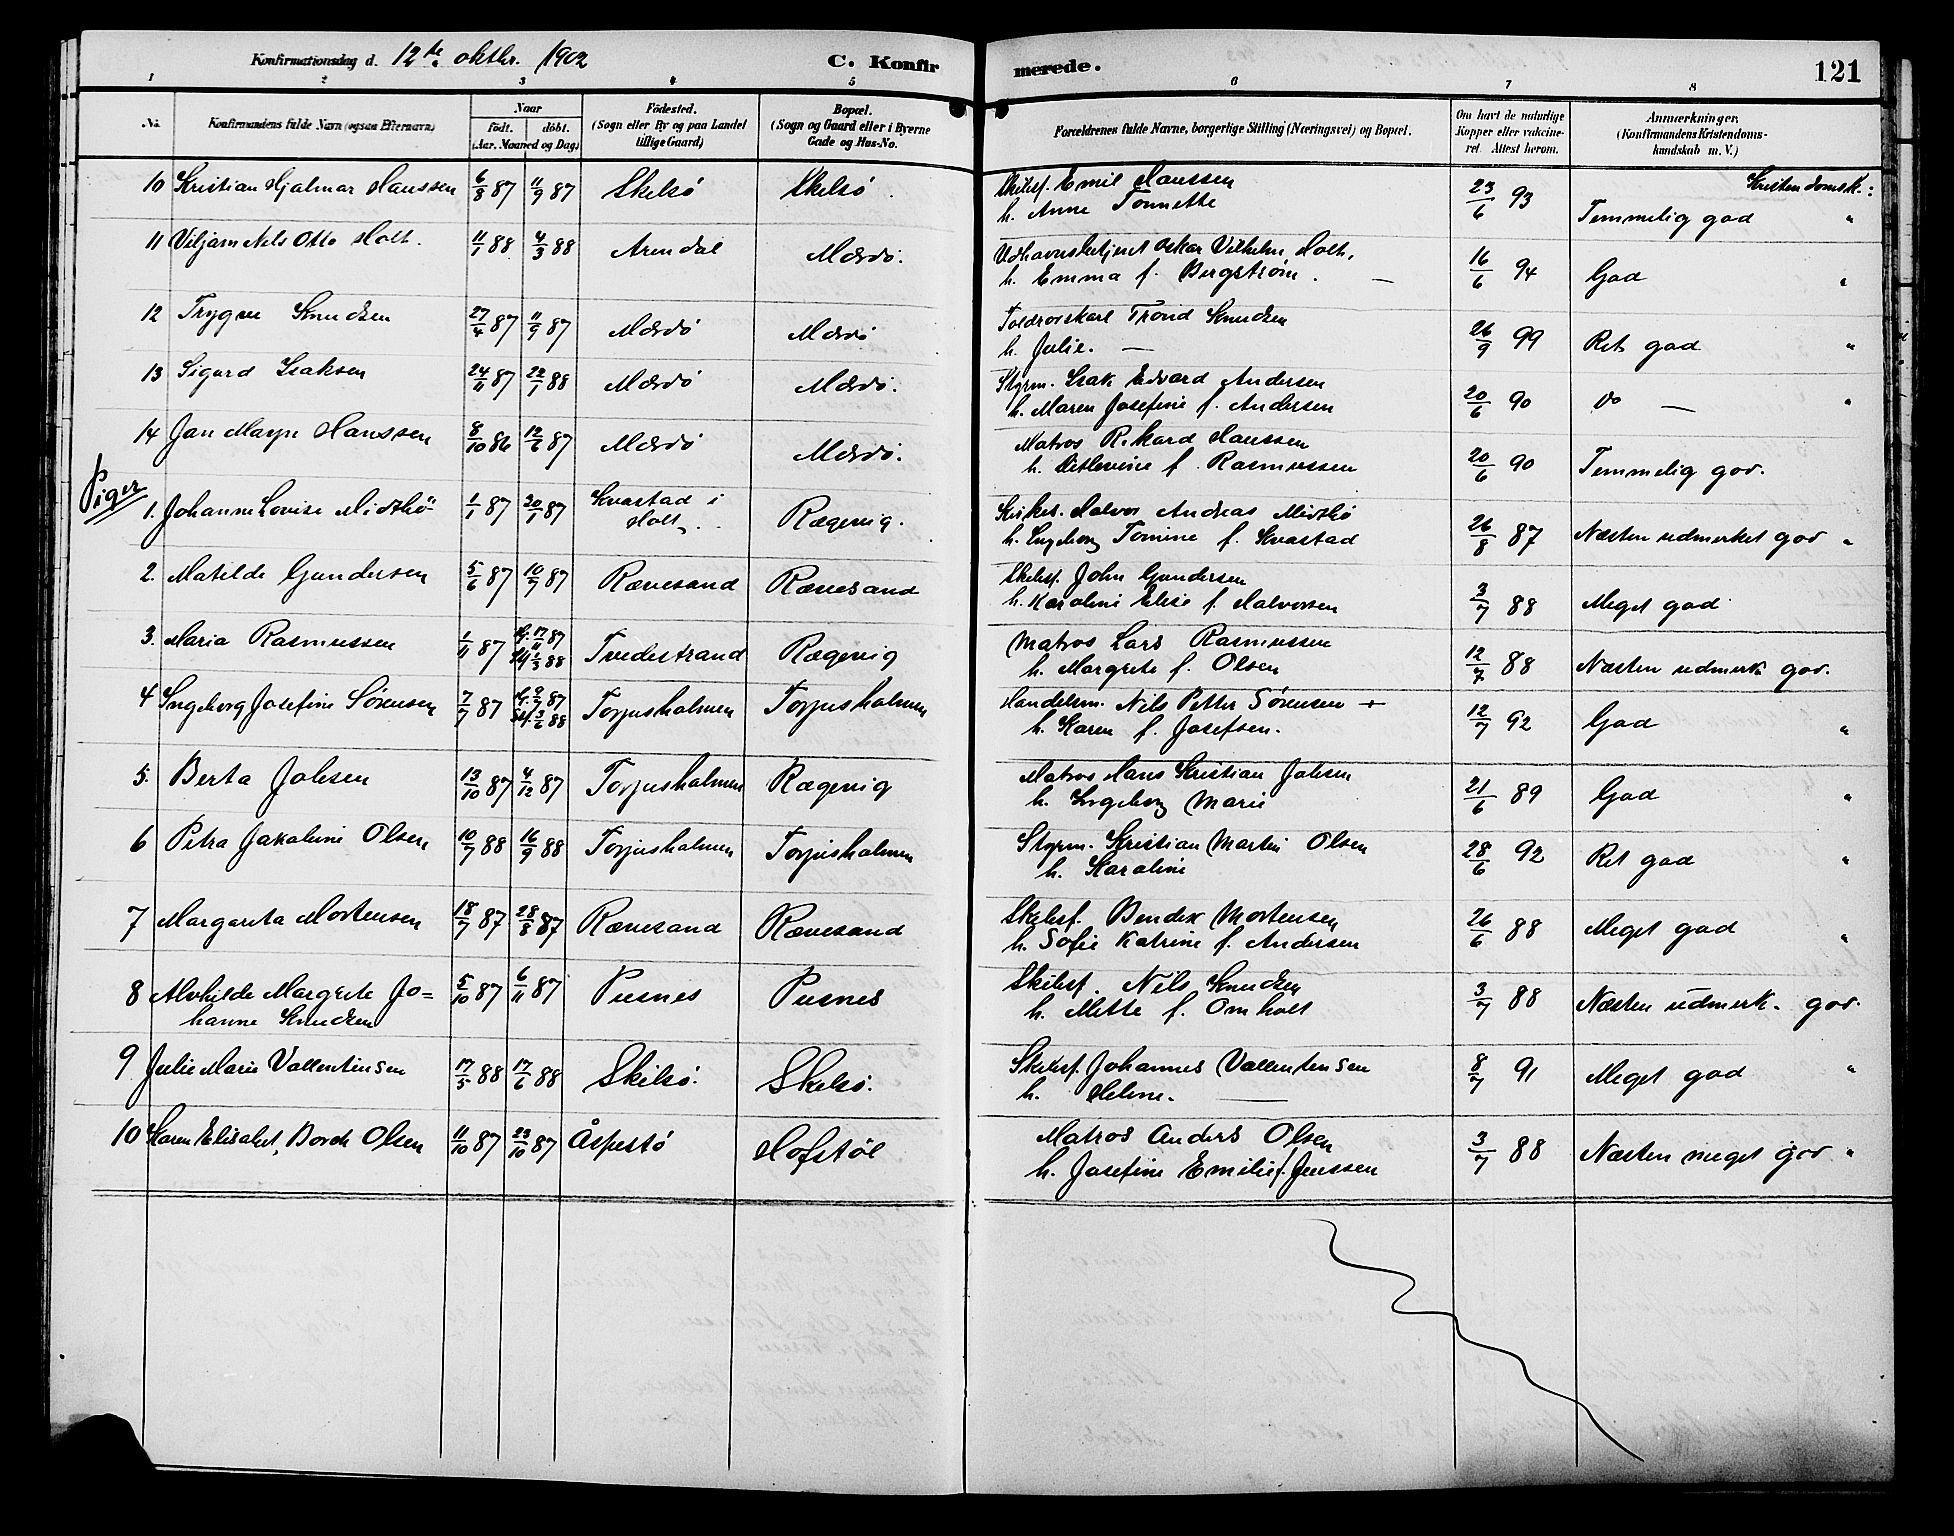 Konfirmationsdag d. 12te oktbr. 1902 C. Konfirmerede. 121
1 2 3 4 5 6 7 8
No. Konfirmandens fulde Navn (ogsaa Efternavn) Naar født. døbt. (Aar, Maaned og Dag) Fødested. (Sogn eller By og paa Landet tillige Gaard) Bopæl. (Sogn og Gaard eller i Byerne Gade og Hus-No. Forældrenes fulde Navne, borgerlige Stilling (Næringsvei) og Bopæl. Om havt de naturlige Kopper eller vakcineret. Attest herom. Anmærkninger. (Konfirmandens Kristendomskundskab m. V.)
Kristendomsk.:
10 Kristian Hjalmar Hanssen 6/8 87 11/9 87 Skilsö Skilsö. Skibsf. Emil Hanssen
h. Anne Tonnette 23/6 93 Temmelig god "
11 Viljam Nils Otto Holt. 11/1 88 4/3 88 Arendal Mærdö. Oskar Vilhelm Holt,
h. Emma f. Bergström. — 16/6 94 God "
12 Trygve Knudsen 27/4 87 11/9 87 Mærdö Mærdö Toldrorskarl Trond Knudsen
h. Julie. — 26/9 99 Ret god "
13 Sigurd Isaksen 24/11 87 22/1 88 Mærdö Mærdö. Styrm. Isak Edvard Andersen
h. Maren Josefine f. Andersen 20/6 90 do — "
14 Jan Hanssen 8/10 86 12/6 87 Mærdö Mærdö. Matros Rikard Hanssen
h. Ditlevine f. Rasmussen 20/6 90 Temmelig god.
Piger
1. Johanne Lovise Midtbö 1/1 87 20/1 87 Kvastad i Holt. Rægevig. Halvor Andreas Midtbö
h. Ingeborg Tomine f. Kvastad 26/8 87 Næsten udmerket god "
2. Matilde Gundersen 5/6 87 10/7 87 Rævesand Rævesand Skibsf. John Gundersen
h. Karoline Elise f. Halvorsen 3/7 88 Meget god
3. Maria Rasmussen 1/11 87 Hj. 17/11 87 Stf. 1/3 88 Tvedestrand Rægevig Matros Lars Rasmussen
h. Margrete f. Olsen 12/7 88 Næsten udmerk. god.
4 Ingeborg Josefine Sörensen 7/7 87 Hj. 9/7 87 Stf. 3/6 88 Torjusholmen Torjusholmen Handelsm. Nils Petter Sörensen +
h. Karen f. Josefsen. 12/7 92 God "
5. Berta Johsen 13/10 87 4/12 87 Torjusholmen Rægevig Matros Hans Kristian Johsen
h. Ingeborg Marie 21/6 89 God "
6 Petra Jakobine Olsen 10/7 88 16/9 88 Torjusholmen Torjusholmen Styrm. Kristian Martin Olsen
h. Karoline 28/6 92 Ret god "
7 Margareta Mortensen 18/7 87 28/8 87 Rævesand Rævesand Skibsf. Bendix Mortensen
h. Sofie Katrine f. Andersen 26/6 88 Meget god "
8 Alvhilde Margrete Johanne Knudsen 5/10 87 6/11 87 Pusnes Pusnes Skibsf. Nils Knudsen
h. Mette f. Omholt 3/7 88 Næsten udmerk. god.
9 Julie Marie Vallentinsen 17/5 88 17/6 88 Skilsö. Skilsö. Skibsf. Johannes Vallentinsen
h. Helene. — 8/7 91 Meget god "
10 Karen Elisabet, Borch Olsen 11/10 87 23/10 87 Åspestö Hofstöl Matros Anders Olsen
h. Josefine Emilie f. Jenssen 3/7 88 Næsten meget god "